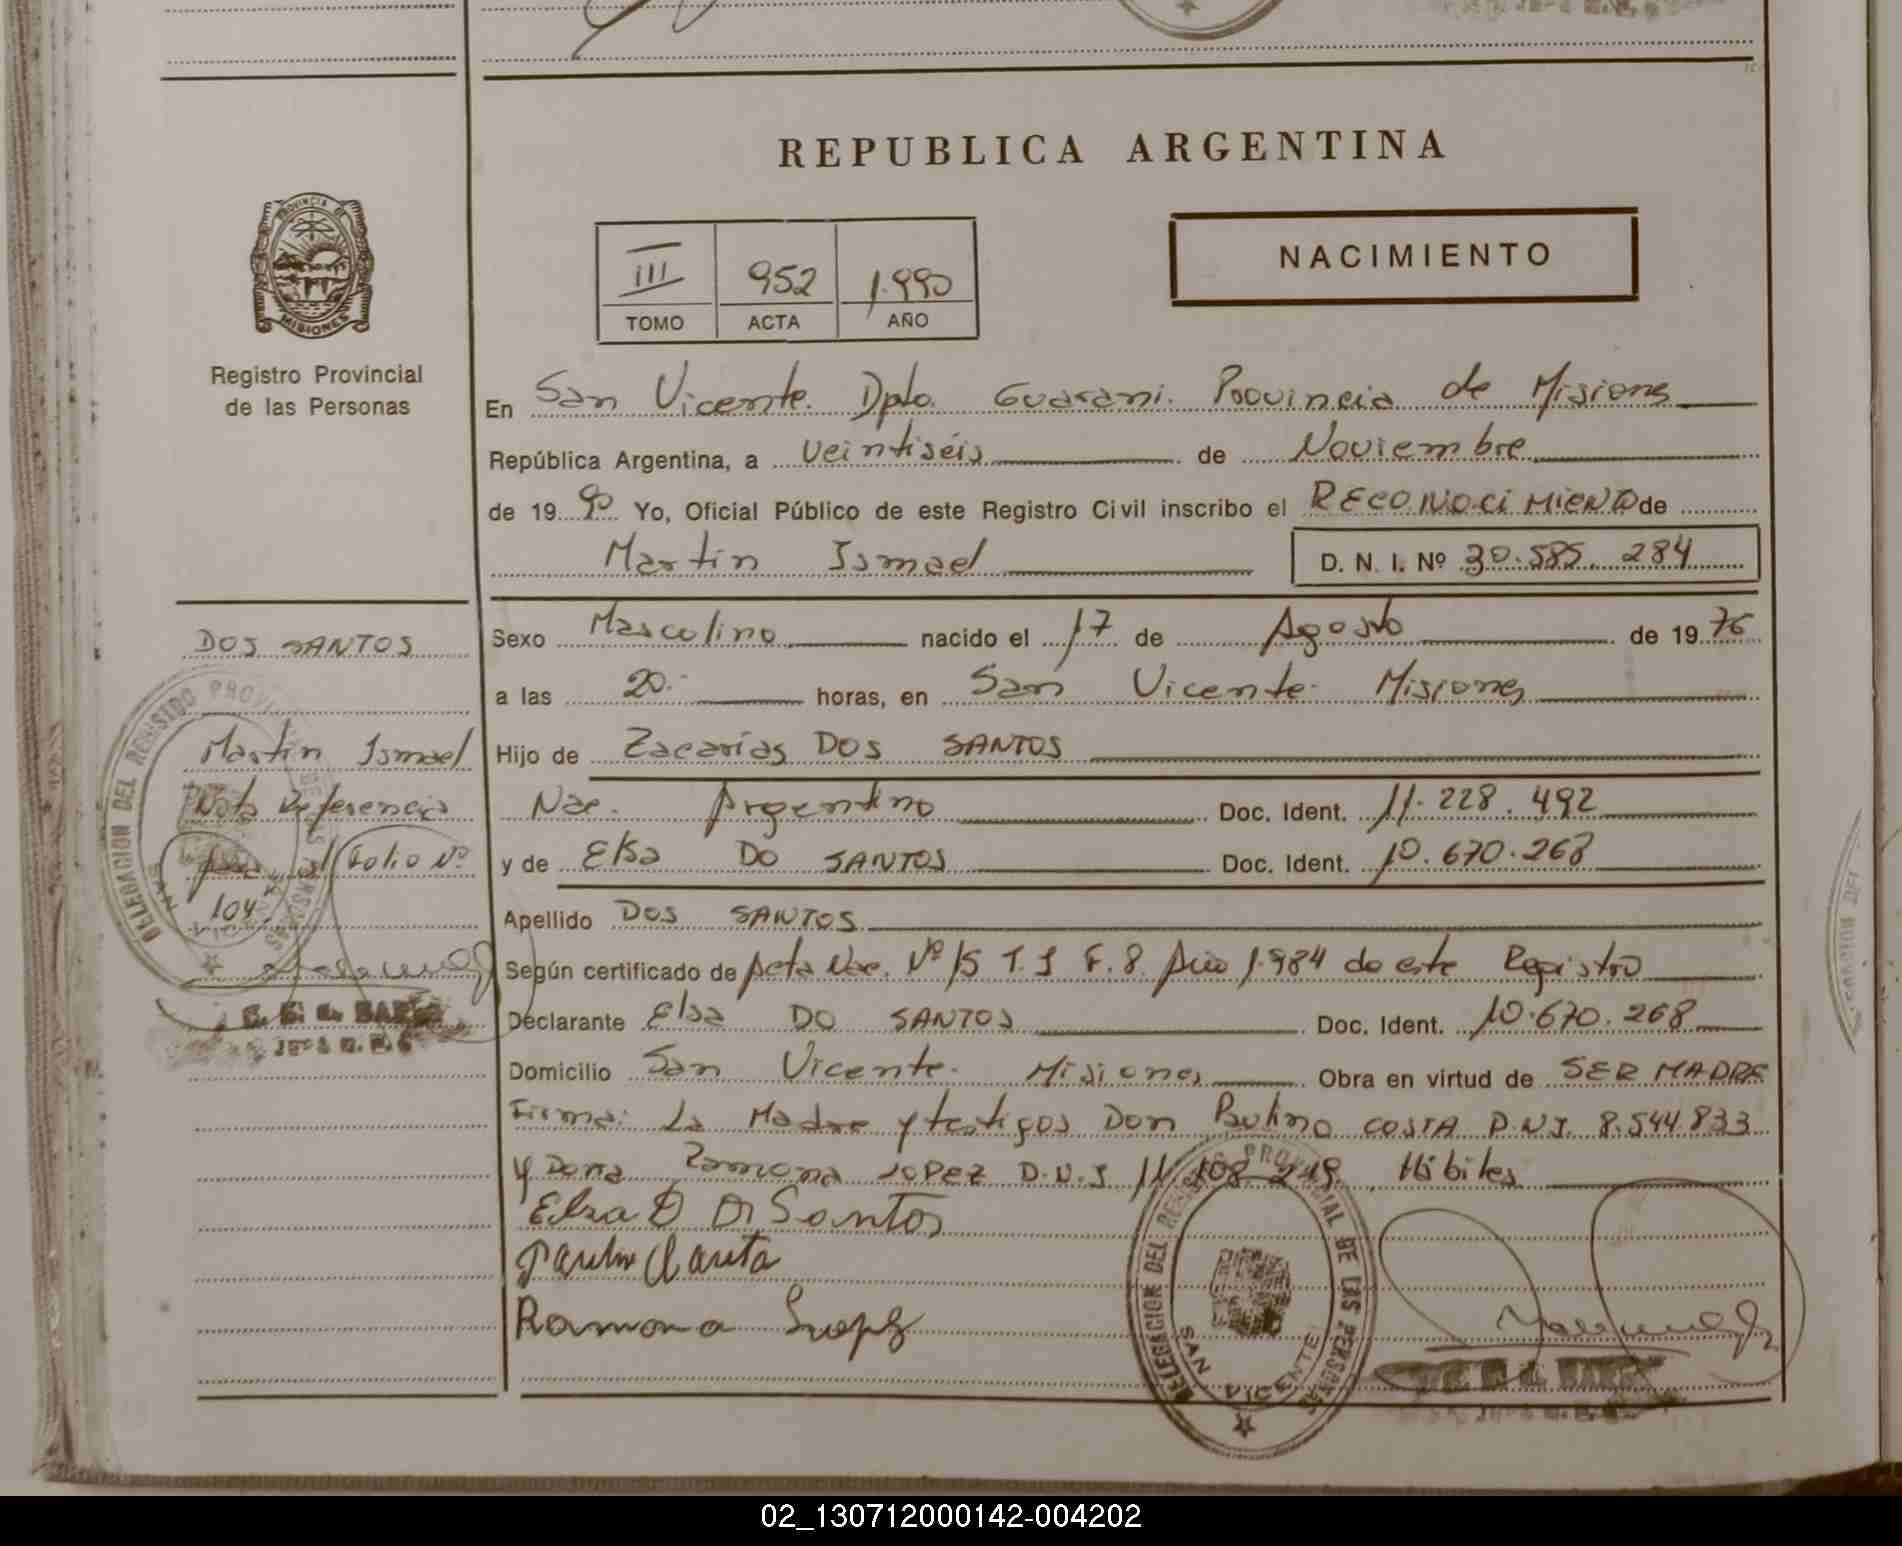 REPUBLICA ARGENTINA
III 952 1.990
TOMO ACTA AÑO
NACIMIENTO
PROVINCIA DE
MISIONES
Registro Provincial
de las Personas
En San Vicente. Dpto. Guarani. Provincia de Misiones
República Argentina, a veintiséis de Noviembre
de 1990 Yo, Oficial Público de este Registro Civil inscribo el RECONOCIMIENTO de
Martin Ismael D. N. I. Nº 30.585.284
Sexo Masculino nacido el 17 de Agosto de 1976
a las 20.- horas, en San Vicente- Misiones
Hijo de Zacarías DOS SANTOS
Nac. Argentino Doc. Ident. 11.228.492
y de Elsa DO SANTOS Doc. Ident. 10.670.268
Apellido DOS SANTOS
Según certificado de Acta Nac. Nº 15 T. I F. 8 Año 1.984 de este Registro
Declarante Elsa DO SANTOS Doc. Ident. 10.670.268
Domicilio San Vicente- Misiones Obra en virtud de SER MADRE
Firma: La Madre y testigos Don Paulino COSTA D.N.I. 8.544.833
y Doña Ramona LOPEZ D.N.I 11.108.219. Hábiles
Elsa D Santos
Ramona
DELEGACION DEL REGISTRO PROVINCIAL DE LAS PERSONAS
SAN VICENTE
DOS SANTOS
Martin Ismael
Nota Referencia
para el Folio Nº
104
DELEGACION DEL REGISTRO PROVI
02_130712000142-004202